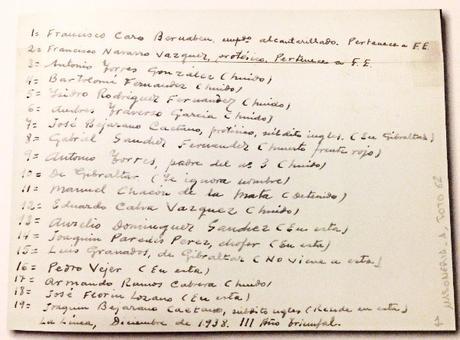 1= Francisco Caro Bernabeu, empdo alcantarillado. Pertenece a F.E.
2= Francisco Navarro Vazquez, protésico. Pertenece a F.E.
3= Antonio Torres Gonzalez (huido)
4= Bartolomé Fernandez (huido)
5= Ysidro Rodriguez Fernandez (huido)
6= Traverso Garcia (huido)
7= José Bejarano Caetano, protésico, súbdito ingles. (En Gibraltar)
8= Gabriel Sandez Fernandez (muerto frente rojo)
9= Antonio Torres, padre del nº 3 (huido)
10= De Gibraltar (Se ignora nombre)
11= Manuel Chacón de la Mata (detenido)
12= Eduardo Calva Vazquez (huido)
13= Aurelio Dominguez Sandez (En esta)
14= Joaquin Paredes Perez, chofer (En esta)
15= Luis Granados, de Gibraltar (No viene a esta)
16= Pedro Vejer (En esta)
17= Armando Ramos Cabrera (huido)
18= José Florin Lozano (En esta)
19= Joaquin Bejarano Caetano, súbdito ingles (Reside en esta)
La Linea, Diciembre de 1938. III Año triunfal.
MASONERIA, A, FOTO 62